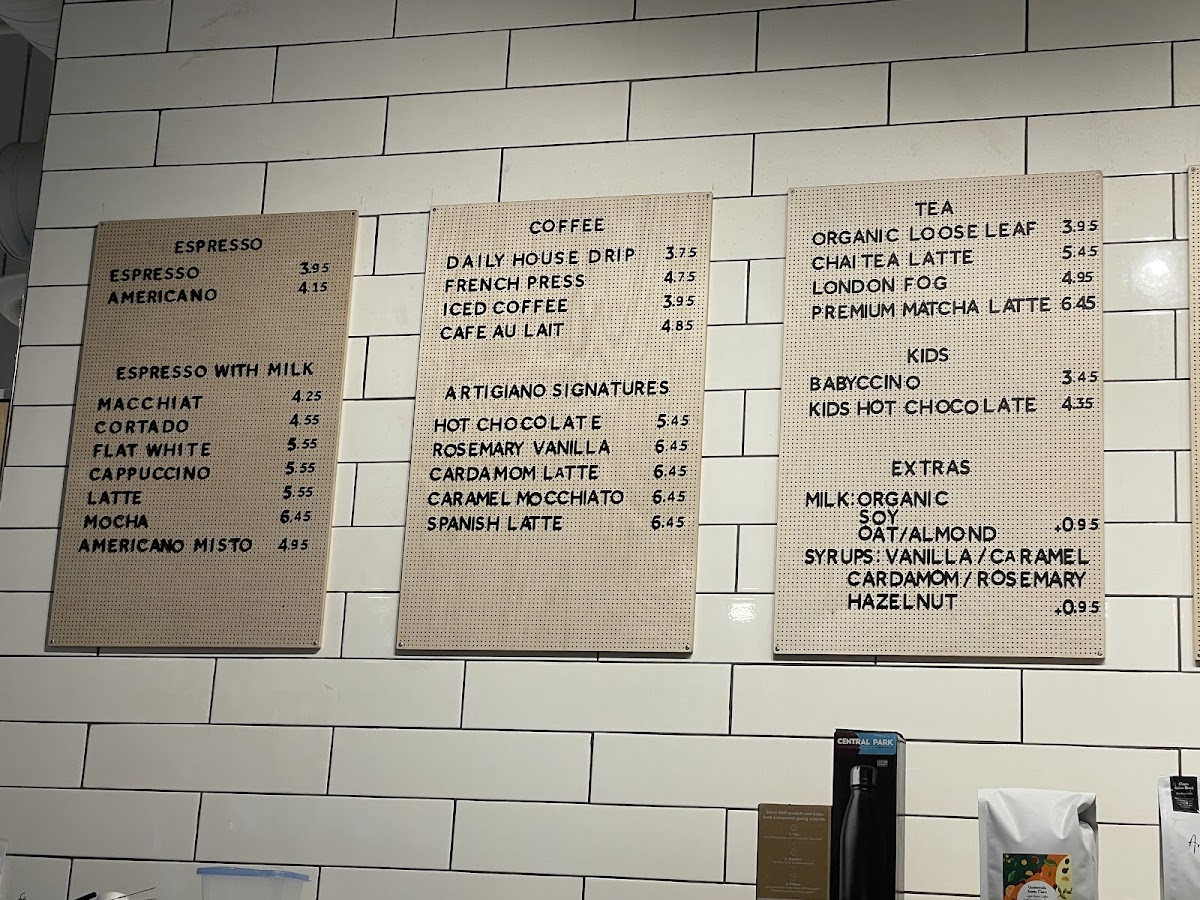 ESPRESSO
ESPRESSO 3.95
AMERICANO 4.15
ESPRESSO WITH MILK
MACCHIAT 4.25
CORTADO 4.55
FLAT WHITE 5.55
CAPPUCCINO 5.55
LATTE 5.55
MOCHA 6.45
AMERICANO MISTO 4.95
COFFEE
DAILY HOUSE DRIP 3.75
FRENCH PRESS 4.75
ICED COFFEE 3.95
CAFE AU LAIT 4.85
ARTIGIANO SIGNATURES
HOT CHOCOLATE 5.45
ROSEMARY VANILLA 6.45
CARDAMOM LATTE 6.45
CARAMEL MOCCHIATO 6.45
SPANISH LATTE 6.45
TEA
ORGANIC LOOSE LEAF 3.95
CHAI TEA LATTE 5.45
LONDON FOG 4.95
PREMIUM MATCHA LATTE 6.45
KIDS
BABYCCINO 3.45
KIDS HOT CHOCOLATE 4.35
EXTRAS
MILK: ORGANIC
SOY
OAT/ALMOND +0.95
SYRUPS: VANILLA / CARAMEL
CARDAMOM / ROSEMARY
HAZELNUT +0.95
CENTRAL PARK